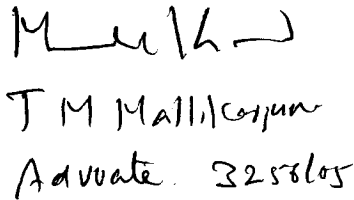 T M Mallikarjuna
Advocate. 3258/05